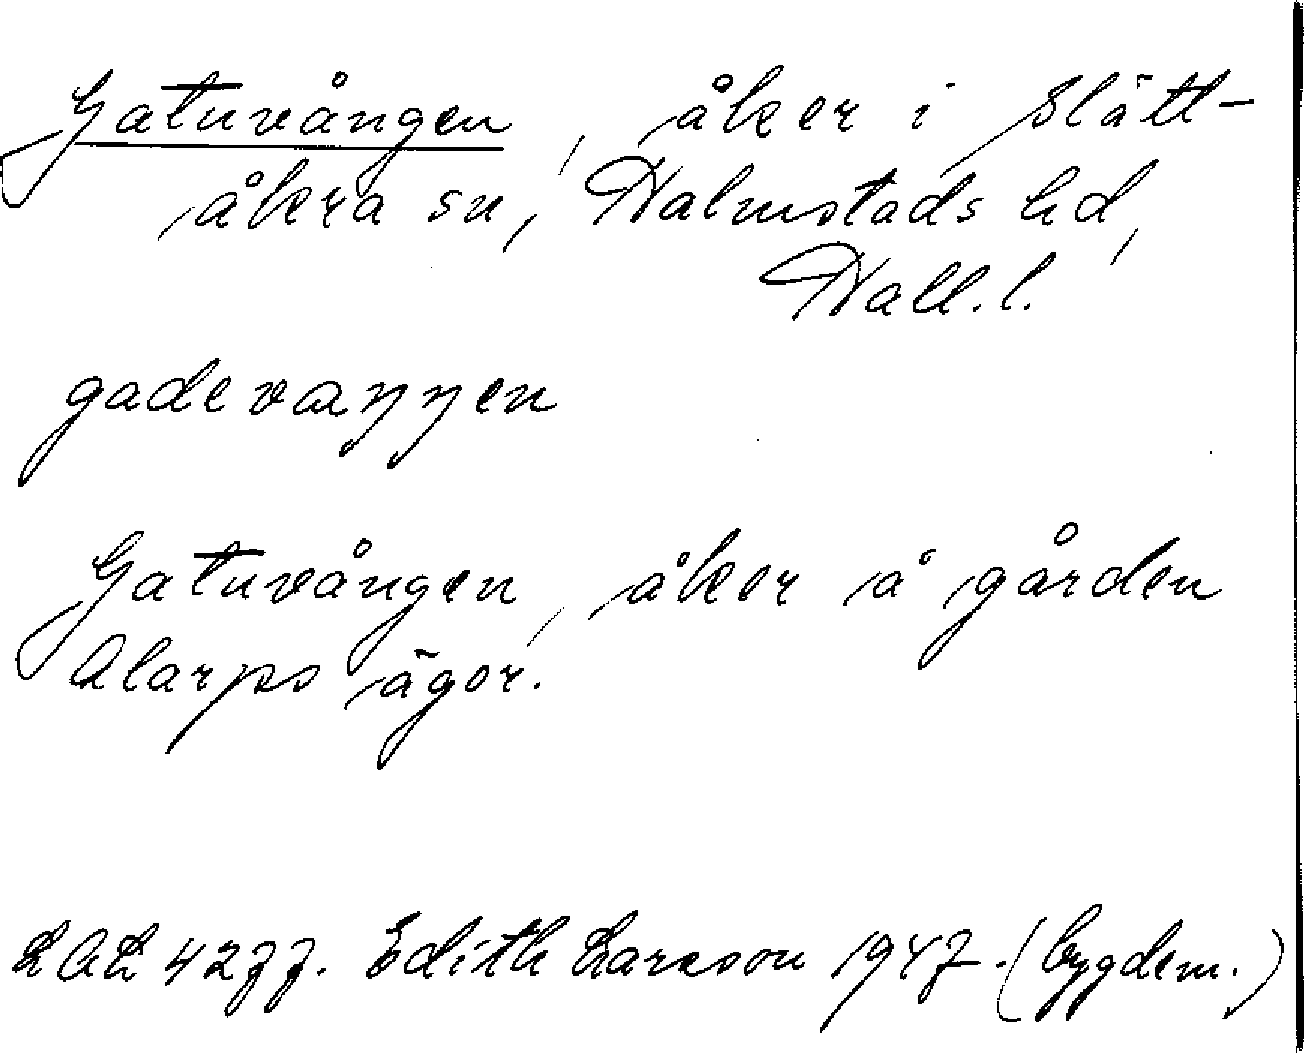 Gatuvången, åker i Slätt-
åkra sn, Halmstads hd,
Hall. l.
gadevaŋŋen
Gatuvången, åker å gården
Alarps ägor.
LAL 4277. Edith Larsson 1947. (bygdem.)